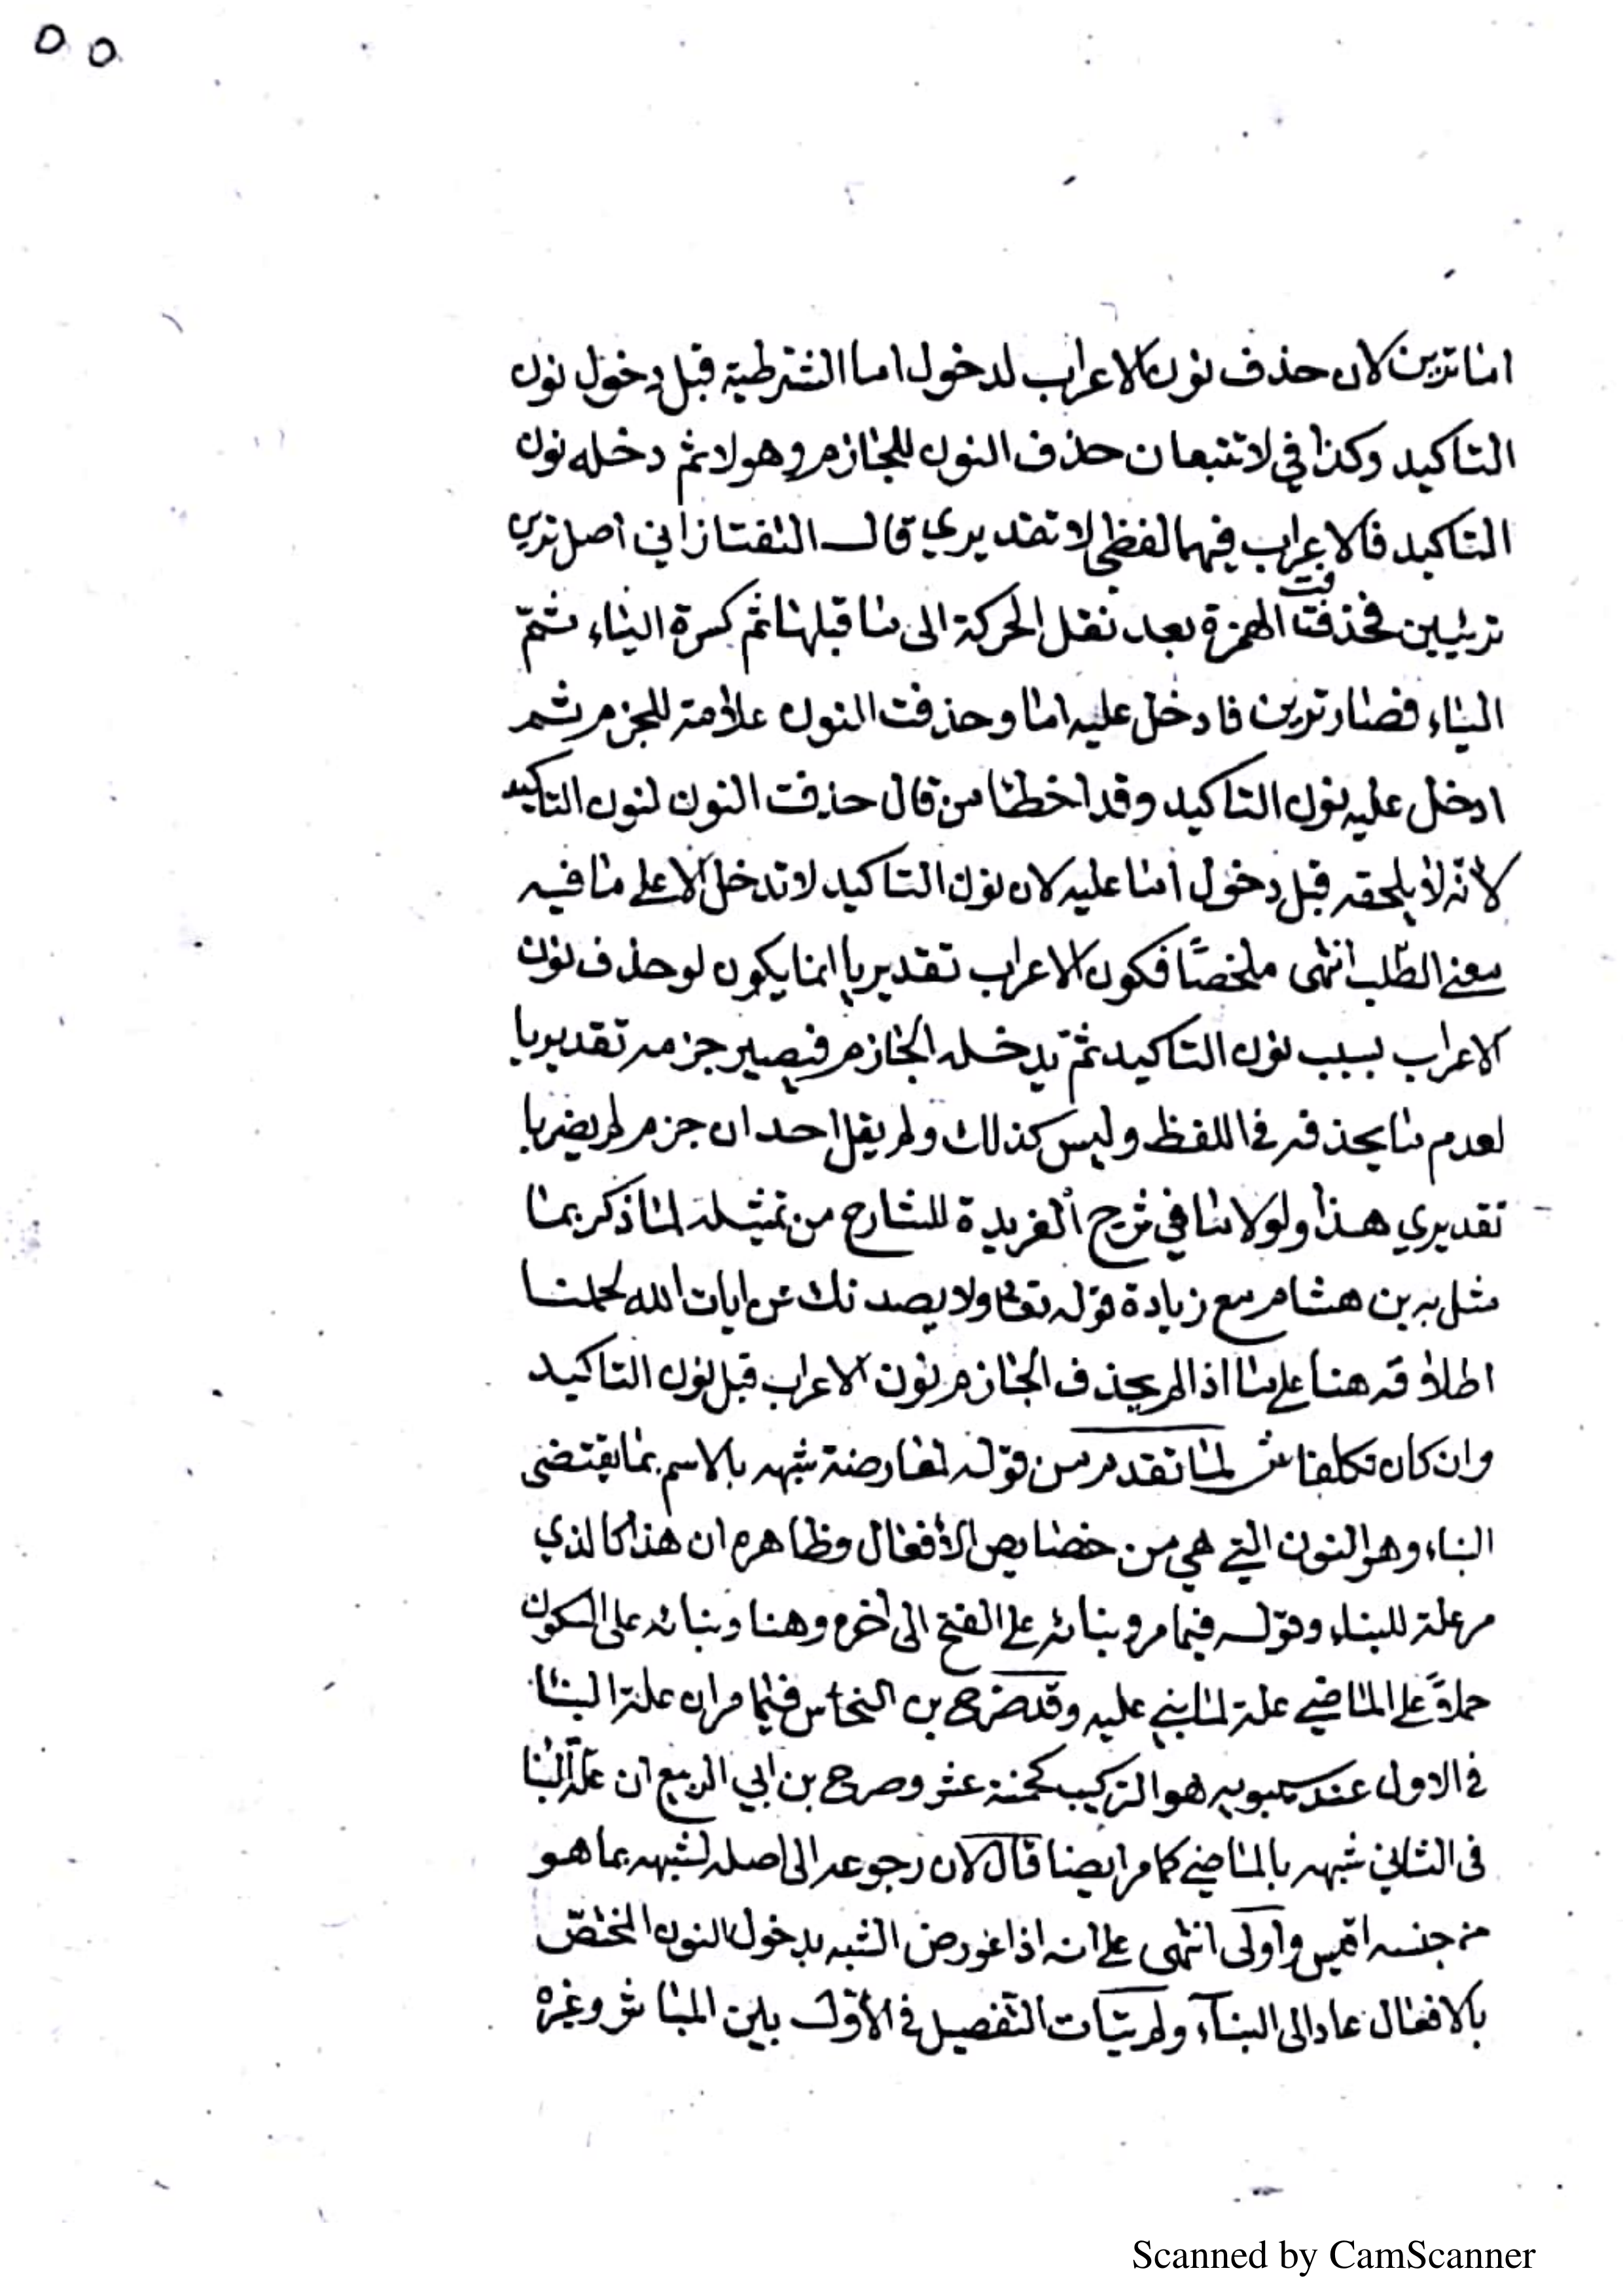 ٥٥
اما ترين لان حذف نون الاعراب لدخول اما الشرطية قبل دخول نون
التاكيد وكذا في لا تتبعان حذف النون للجازم وهو لا ثم دخله نون
التاكيد فالاعراب فيهما لفظي لا تقديري قال التفتازاني اصل ترين
ترئيين فحذفت الهمزة بعد نقل الحركة الى ما قبلها ثم كسرة الياء ثم
الياء فصار ترين فادخل عليه اما وحذفت النون علامة للجزم ثم
ادخل عليه نون التاكيد وقد اخطا من قال حذفت النون لنون التاكيد
لانه لا يلحقه قبل دخول اما عليه لان نون التاكيد لا تدخل الا على ما فيه
معنى الطلب انتهى ملخصًا فكون الاعراب تقديريا انما يكون لو حذف نون
الاعراب بسبب نون التاكيد ثم يدخله الجازم فيصير جزمه تقديريا
لعدم ما يحذفه في اللفظ وليس كذلك ولم يقل احد ان جزم لم يضربا
تقديري هذا ولولا ما في شرح الفريدة للشارح من تمثيله لما ذكر بما
مثل به بن هشام مع زيادة قوله تعالى ولا يصدنك عن ايات الله لحملنا
اطلاقه هنا على ما اذا لم يحذف الجازم نون الاعراب قبل نون التاكيد
وان كان تكلفا ش لما تقدم من قوله لمعارضة شبهه بالاسم بما يقتضى
البناء وهو النون التي هي من خصايص الافعال وظاهره ان هذا كالذي
مر علة للبناء وقوله فيما مر وبنائه على الفتح الى اخره وهنا وبنائه على السكون
حملاً على الماضي علة لما بني عليه وقد صرح بن النحاس فيما مر ان علة البنا
في الاول عند سيبويه هو التركيب كخمسة عشر وصرح بن ابي الربيع ان علة البنا
في الثاني شبهه بالماضي كما مر ايضا قال لان رجوعه الى اصله لشبهه بما هو
من جنسه اقيس واولى انتهى على انه اذا عورض الشبه بدخول النون المختصّ
بالافعال عاد الى البناء ولم يتات التفصيل في الاول بين المباشر وغيره
Scanned by CamScanner